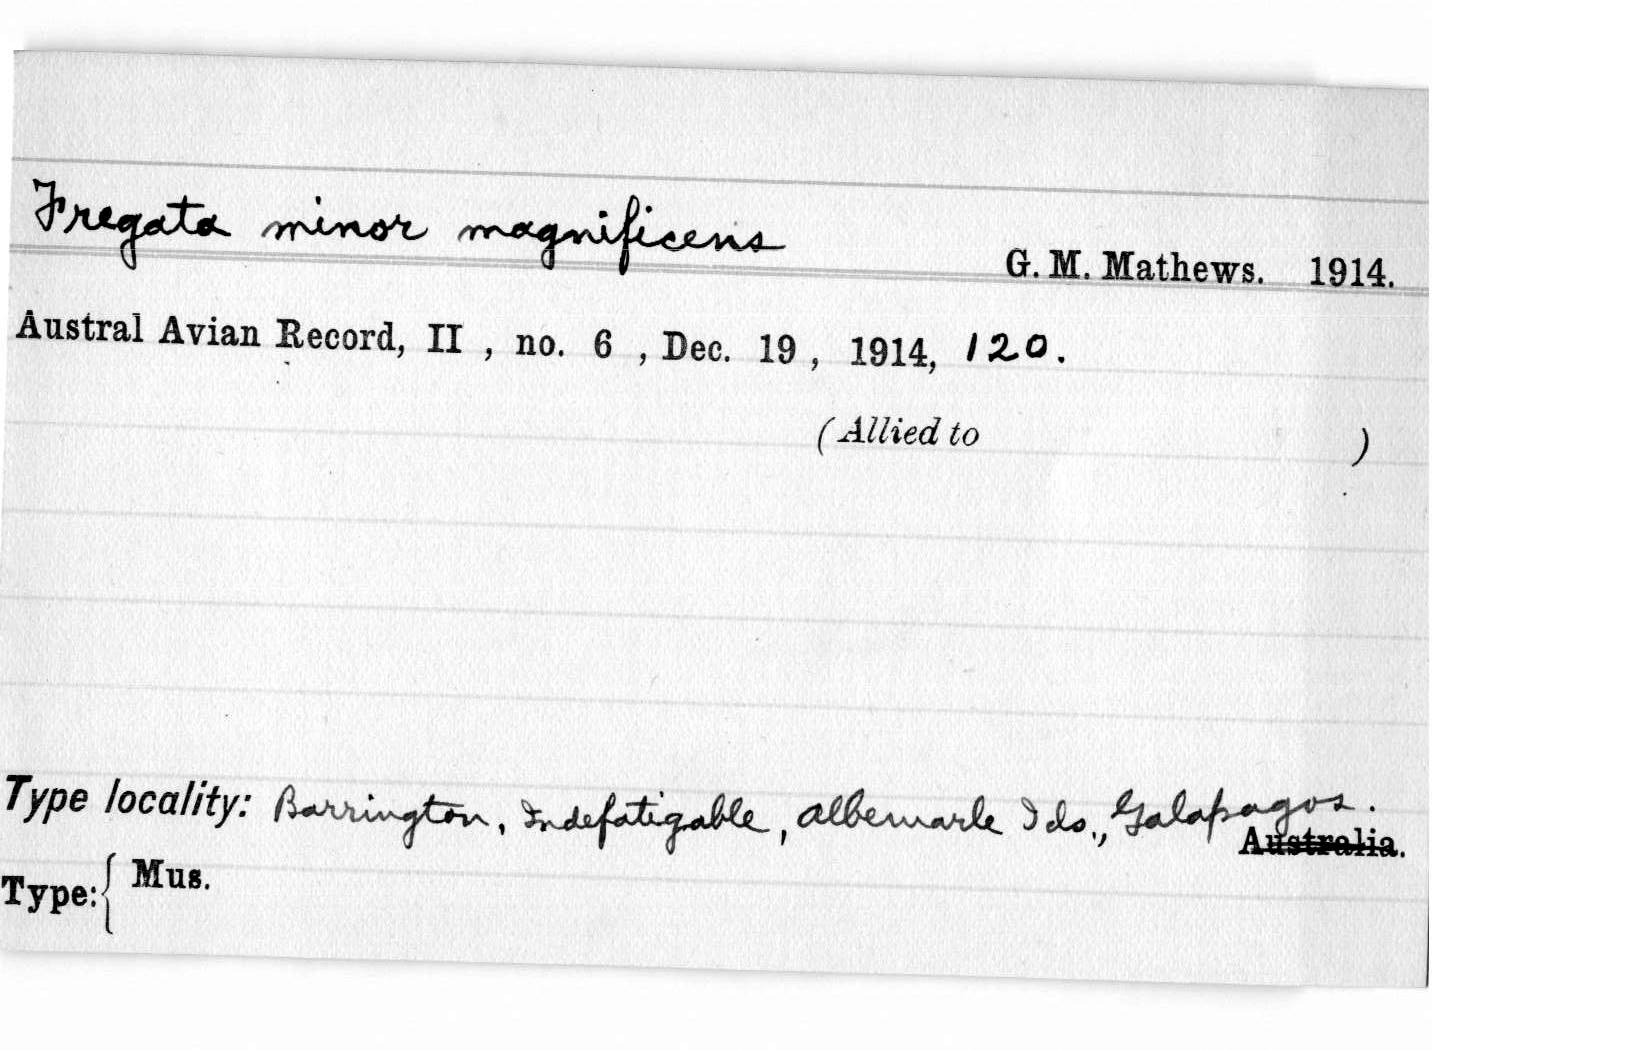 Fregata minor magnificens
G. M. Mathews. 1914.
Austral Avian Record, II , no. 6 , Dec. 19 , 1914, 120.
(Allied to )
Type locality: Barrington, Indefatigable, Albemarle Ids., Galapagos.
Australia.
Type: { Mus.